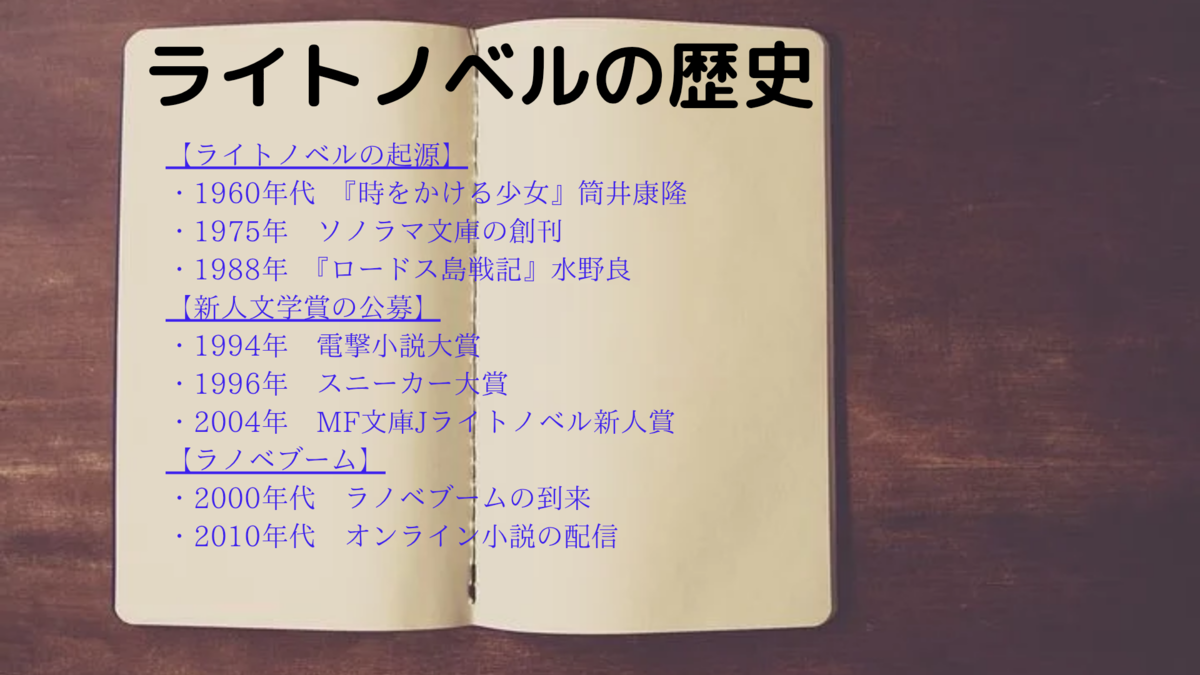 ライトノベルの歴史
【ライトノベルの起源】
・1960年代 『時をかける少女』筒井康隆
・1975年　ソノラマ文庫の創刊
・1988年 『ロードス島戦記』水野良
【新人文学賞の公募】
・1994年　電撃小説大賞
・1996年　スニーカー大賞
・2004年　MF文庫Jライトノベル新人賞
【ラノベブーム】
・2000年代　ラノベブームの到来
・2010年代　オンライン小説の配信